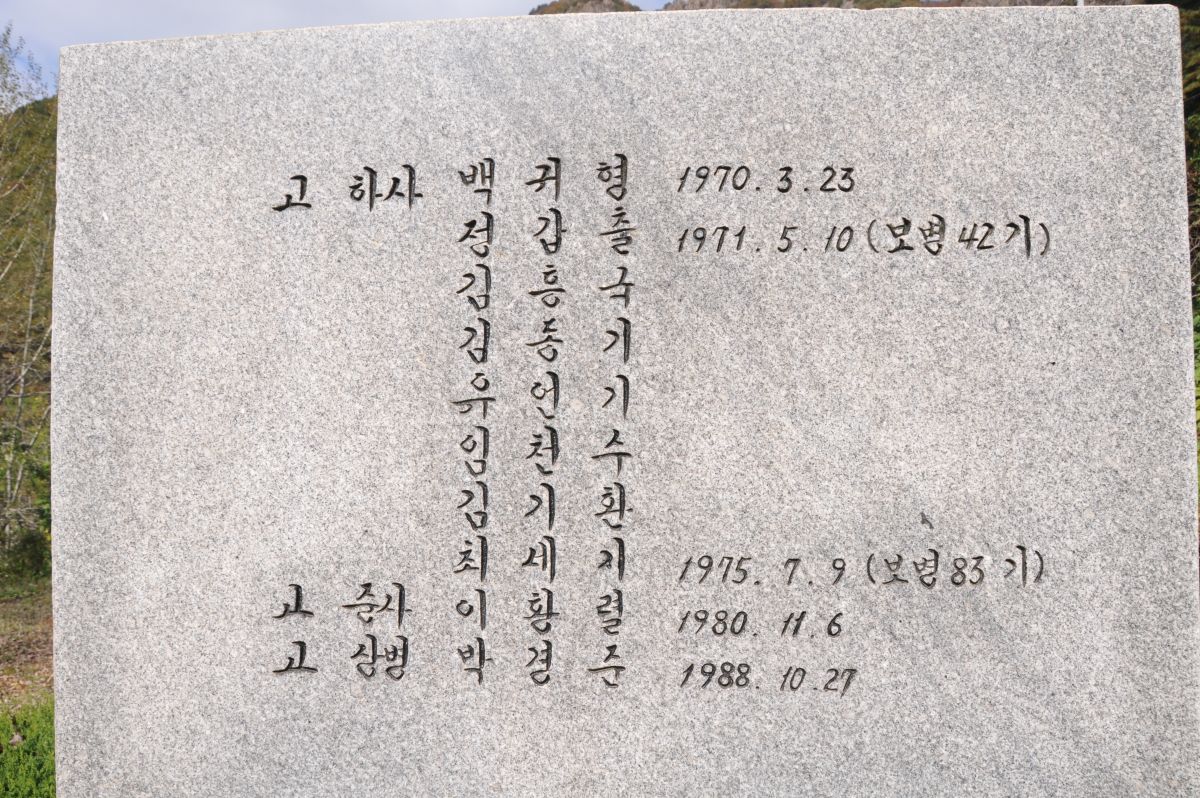 고 하사 백 귀 형 1970. 3. 23
정 갑 출 1971. 5. 10 (보병 42기)
김 흥 국
김 종 기
유 언 기
임 천 수
김 기 환
최 세 지 1975. 7. 9 (보병 83기)
고 준사 이 황 렬 1980. 11. 6
고 상병 박 경 준 1988. 10. 27